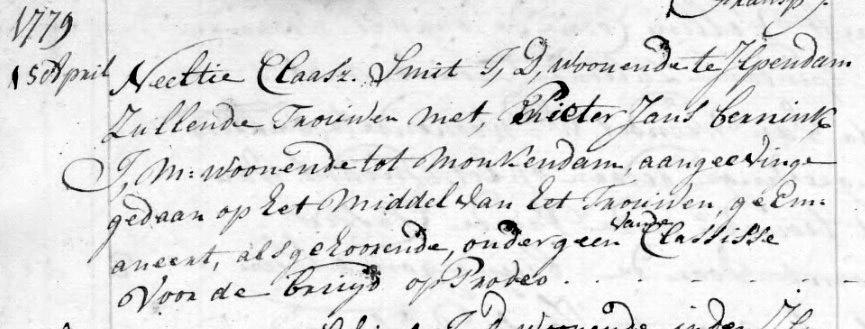 1779
15 April Neeltie Claasz. Smit J, D, woonende te Jlpendam
Zullende Trouwen met, Pieter Jans bennink
J, M: woonende tot Monkendam, aangeevinge
gedaan op het Middel van het Trouwen, ge Em-
aneert, als gehoorende, onder geen vande Classisse
Voor de bruijd op Prodeo . . . . . .
J, D, woonende in de